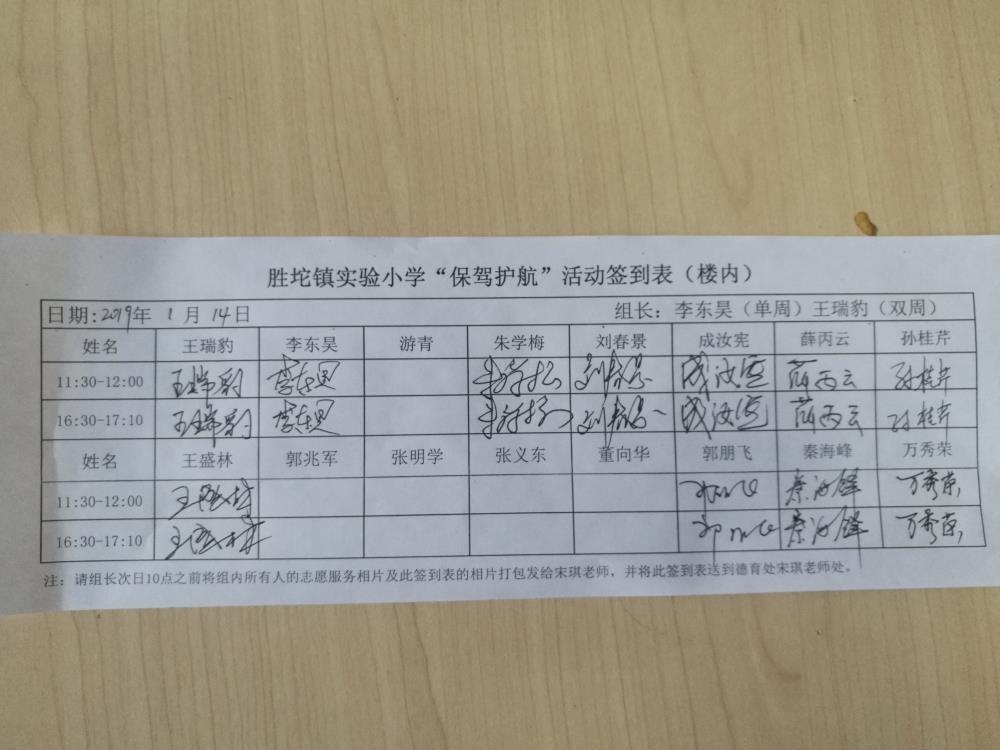 胜坨镇实验小学“保驾护航”活动签到表（楼内）
日期:2019年 1 月 14日 组长：李东昊（单周）王瑞豹（双周）
姓名 王瑞豹 李东昊 游青 朱学梅 刘春景 成汝宪 薛丙云 孙桂芹
11:30-12:00 王瑞豹 李东昊 刘春景 成汝宪 薛丙云 孙桂芹
16:30-17:10 王瑞豹 李东昊 刘春景 成汝宪 薛丙云 孙桂芹
姓名 王盛林 郭兆军 张明学 张义东 董向华 郭朋飞 秦海峰 万秀荣
11:30-12:00 王盛林 秦海峰 万秀荣
16:30-17:10 王盛林 秦海峰 万秀荣
注：请组长次日10点之前将组内所有人的志愿服务相片及此签到表的相片打包发给宋琪老师，并将此签到表送到德育处宋琪老师处。